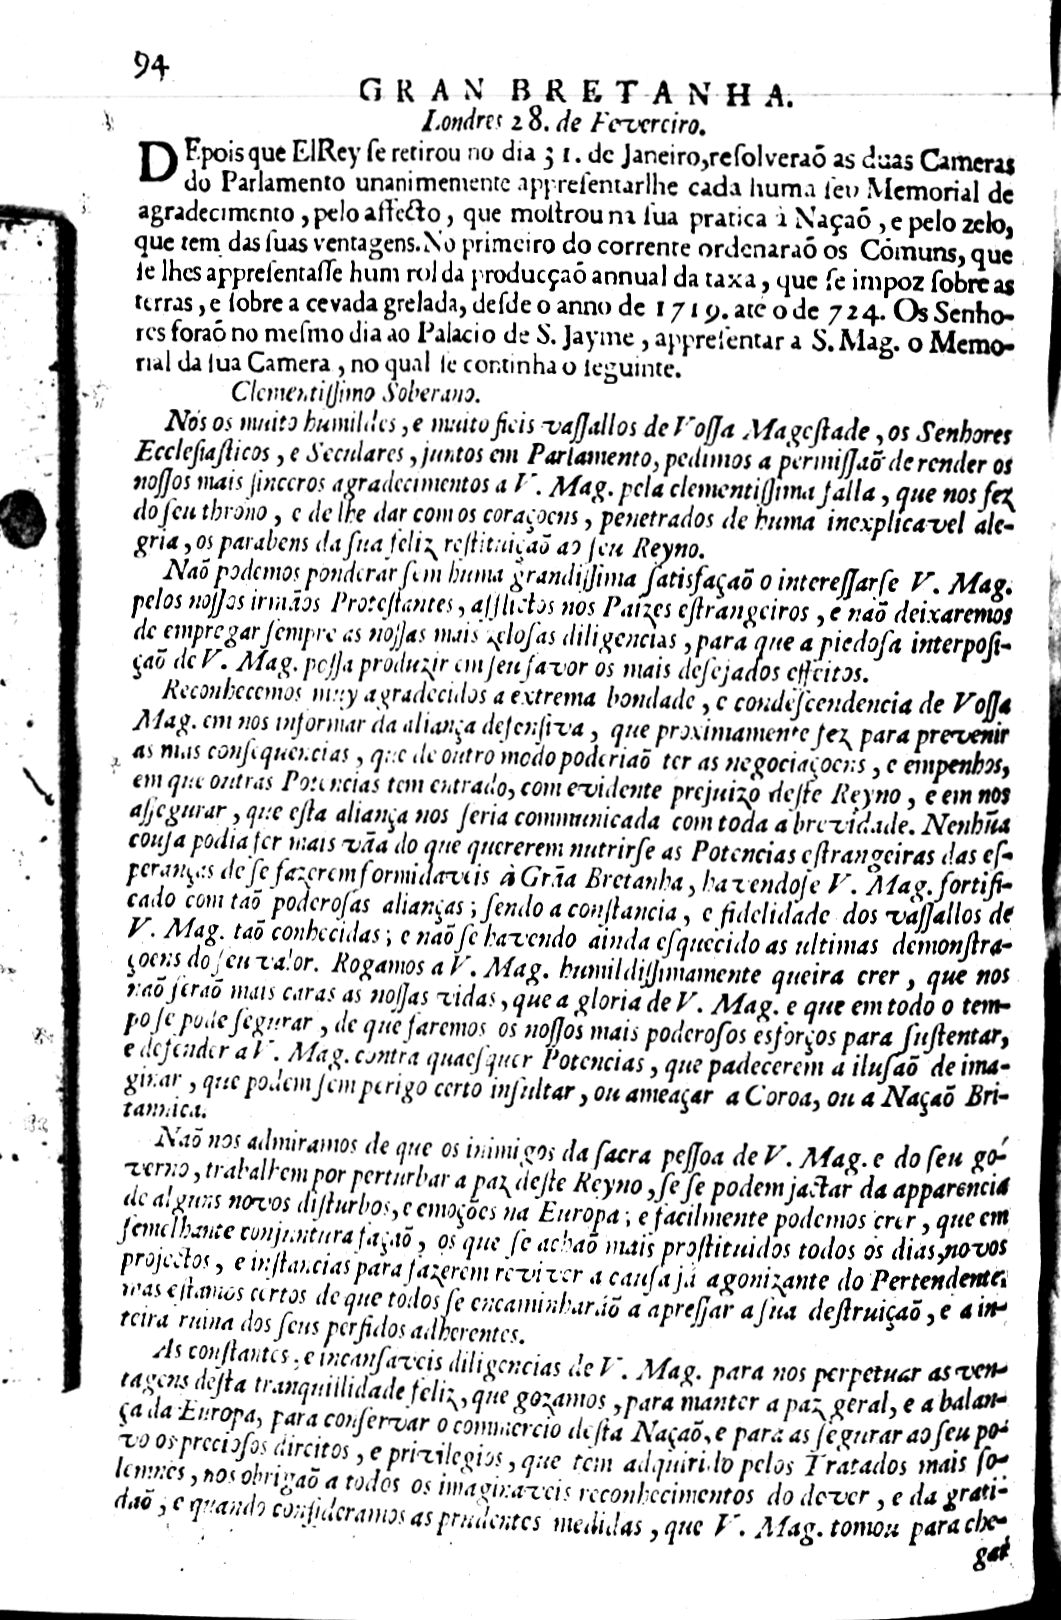 94
GRAN BRETANHA.
Londres 28. de Fevereiro.
DEpois que ElRey se retirou no dia 31. de Janeiro, resolveraõ as duas Cameras
do Parlamento unanimemente appresentarlhe cada huma seu Memorial de
agradecimento, pelo affecto, que mostrou na sua pratica à Naçaõ, e pelo zelo,
que tem das suas ventagens. No primeiro do corrente ordenaraõ os Cõmuns, que
se lhes appresentasse hum rol da producçaõ annual da taxa, que se impoz sobre as
terras, e sobre a cevada grelada, desde o anno de 1719. até o de 724. Os Senho-
res foraõ no mesmo dia ao Palacio de S. Jayme, appresentar a S. Mag. o Memo-
rial da sua Camera, no qual se continha o seguinte.
Clementissimo Soberano.
Nós os muito humildes, e muito fieis vassallos de Vossa Magestade, os Senhores
Ecclesiasticos, e Seculares, juntos em Parlamento, pedimos a permissaõ de render os
nossos mais sinceros agradecimentos a V. Mag. pela clementissima falla, que nos fez
do seu throno, e de lhe dar com os coraçoens, penetrados de huma inexplicavel ale-
gria, os parabens da sua feliz restituiçaõ ao seu Reyno.
Naõ podemos ponderar sem huma grandissima satisfaçaõ o interessarse V. Mag.
pelos nossos irmãos Protestantes, afflictos nos Paizes estrangeiros, e naõ deixaremos
de empregar sempre as nossas mais zelosas diligencias, para que a piedosa interposi-
çaõ de V. Mag. possa produzir em seu favor os mais desejados effeitos.
Reconhecemos muy agradecidos a extrema bondade, e condescendencia de Vossa
Mag. em nos informar da aliança defensiva, que proximamente fez para prevenir
as mas consequencias, que de outro modo poderiaõ ter as negociaçoens, e empenhos,
em que outras Potencias tem entrado, com evidente prejuizo deste Reyno, e em nos
assegurar, que esta aliança nos seria communicada com toda a brevidade. Nenhũa
cousa podia ser mais vãa do que quererem nutrirse as Potencias estrangeiras das es-
peranças de se fazerem formidaveis à Grãa Bretanha, havendose V. Mag. fortifi-
cado com taõ poderosas alianças; sendo a constancia, e fidelidade dos vassallos de
V. Mag. taõ conhecidas; e naõ se havendo ainda esquecido as ultimas demonstra-
çoens do seu valor. Rogamos a V. Mag. humildissimamente queira crer, que nos
naõ seraõ mais caras as nossas vidas, que a gloria de V. Mag. e que em todo o tem-
po se pode segurar, de que faremos os nossos mais poderosos esforços para sustentar,
e defender a V. Mag. contra quaesquer Potencias, que padecerem a ilusaõ de ima-
ginar, que podem sem perigo certo insultar, ou ameaçar a Coroa, ou a Naçaõ Bri-
tannica.
Naõ nos admiramos de que os inimigos da sacra pessoa de V. Mag. e do seu go-
verno, trabalhem por perturbar a paz deste Reyno, se se podem jactar da apparencia
de alguns novos disturbos, e emoções na Europa; e facilmente podemos crer, que em
semelhante conjuntura façaõ, os que se achaõ mais prostituidos todos os dias, novos
projectos, e instancias para fazerem reviver a causa já agonizante do Pertendente:
mas estamos certos de que todos se encaminharáõ a apressar a sua destruiçaõ, e a in-
teira ruina dos seus perfidos adherentes.
As constantes, e incansaveis diligencias de V. Mag. para nos perpetuar as ven-
tagens desta tranquillidade feliz, que gozamos, para manter a paz geral, e a balan-
ça da Europa, para conservar o commercio desta Naçaõ, e para assegurar ao seu po-
vo os preciosos direitos, e privilegios, que tem adquirido pelos Tratados mais so-
lemnes, nos obrigaõ a todos os imaginaveis reconhecimentos do dever, e da grati-
daõ; e quando consideramos as prudentes medidas, que V. Mag. tomou para che-
gar